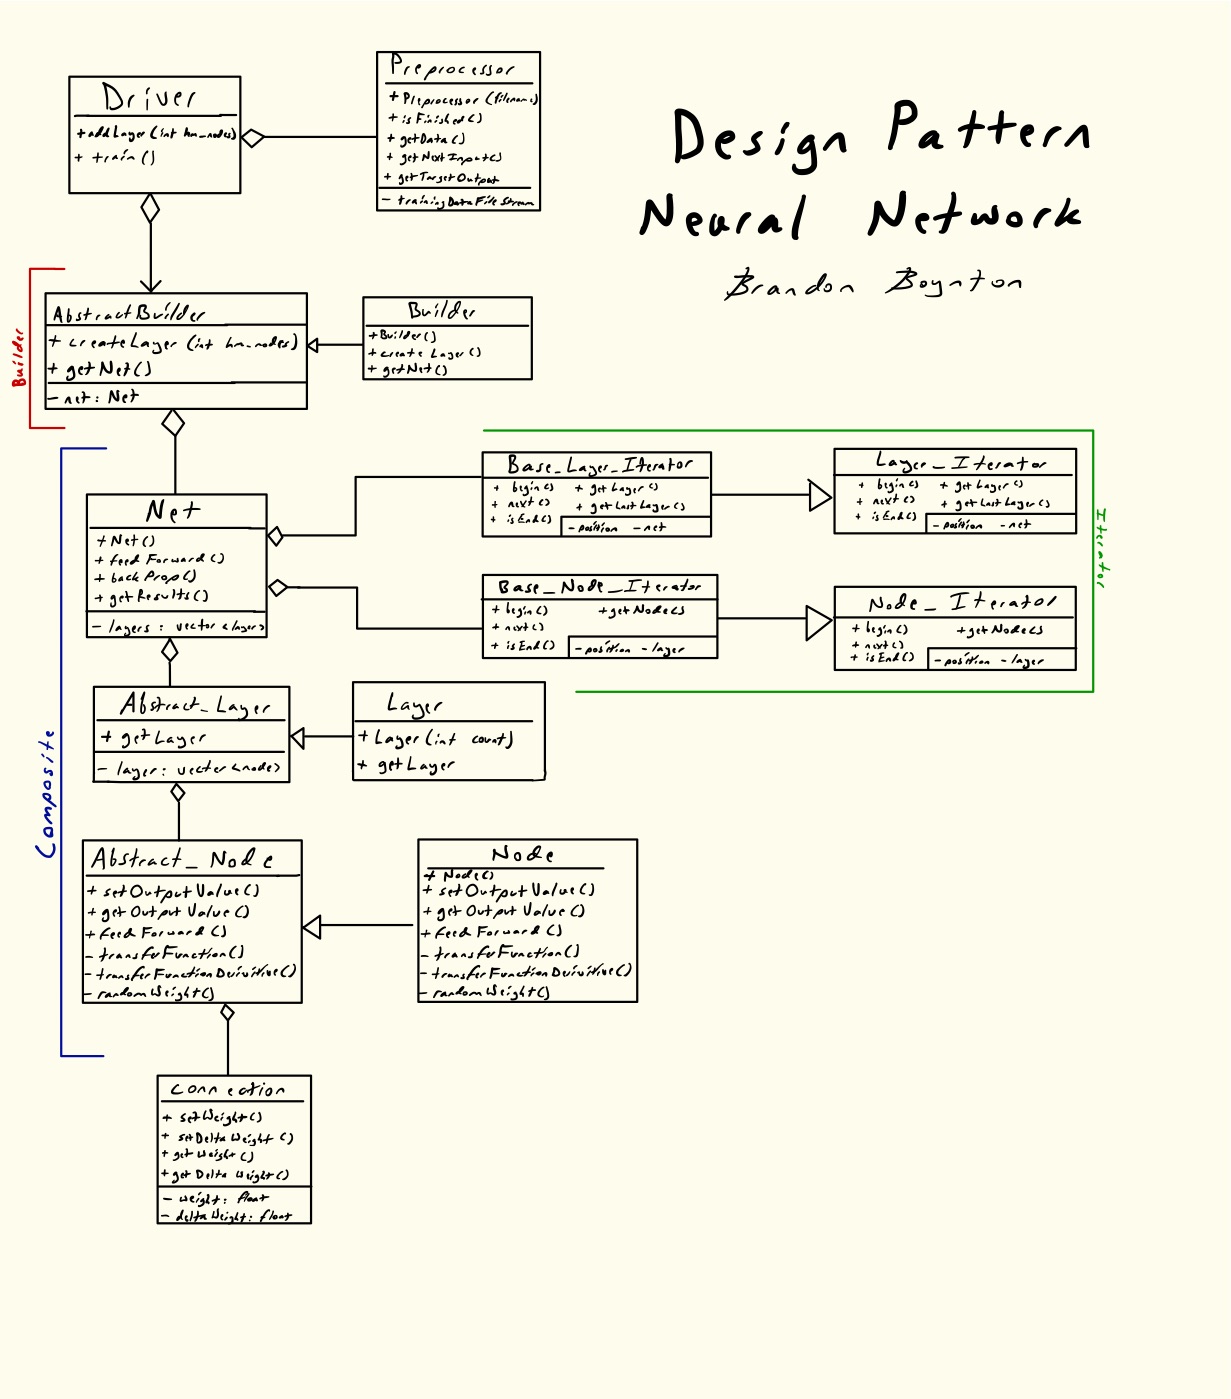 Design Pattern
Neural Network
Brandon Boynton
Driver
+ addLayer (int hm_nodes)
+ train ()
Preprocessor
+ Preprocessor (filename)
+ isFinished ()
+ getData ()
+ getNextInput()
+ getTargetOutput
- trainingDataFileStream
Builder
AbstractBuilder
+ createLayer (int hm_nodes)
+ getNet()
- net: Net
Builder
+ Builder()
+ create Layer ()
+ getNet()
Composite
Net
+ Net()
+ feed Forward ()
+ back Prop()
+ getResults()
- layers : vector <layer>
Iterator
Base_Layer_Iterator
+ begin() + getLayer ()
+ next() + getLastLayer()
+ isEnd()
- position - net
Layer_Iterator
+ begin() + getLayer ()
+ next() + getLastLayer()
+ isEnd()
- position - net
Base_Node_Iterator
+ begin() + getNode()
+ next()
+ isEnd()
- position - layer
Node_Iterator
+ begin() + getNode()
+ next()
+ isEnd()
- position - layer
Abstract_Layer
+ getLayer
- layer: vector <node>
Layer
+ Layer (int count)
+ getLayer
Abstract_Node
+ setOutput Value ()
+ getOutput Value ()
+ feed Forward ()
- transferFunction()
- transferFunctionDerivitive()
- randomWeight()
Node
+ Node()
+ setOutput Value ()
+ getOutput Value ()
+ feed Forward ()
- transferFunction()
- transferFunctionDerivitive()
- randomWeight()
Connection
+ setWeight()
+ setDelta Weight ()
+ get Weight ()
+ get Delta Weight ()
- weight: float
- deltaWeight: float